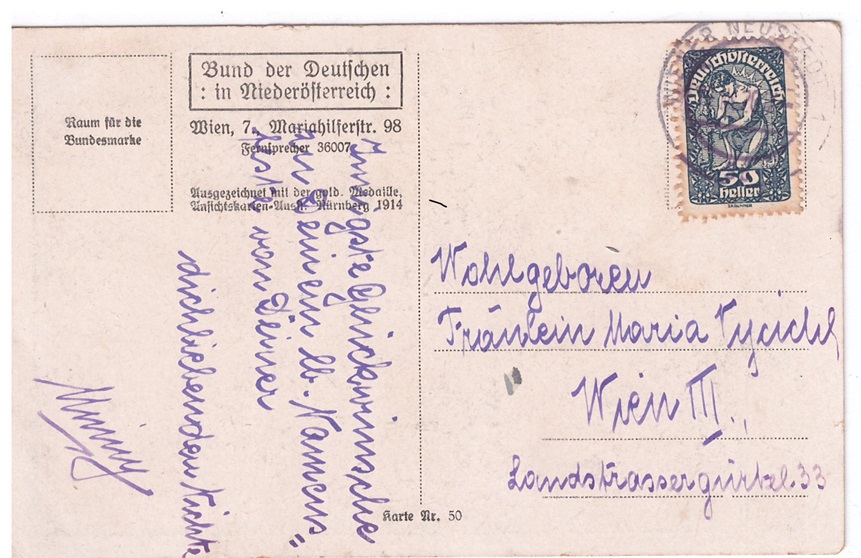 Raum für die
Bundesmarke
Bund der Deutschen
: in Niederösterreich :
Wien, 7. Mariahilferstr. 98
Fernsprecher 36007
Ausgezeichnet mit der gold. Medaille,
Ansichtskarten-Ausst. Nürnberg 1914
Innigste Glückwünsche
zu Deinem lb. Namens"
feste von Deiner
dichliebenden Nichte
WIENER NEUSTADT 1
Deutschösterreich
50
Heller
Wohlgeboren
Fräulein Maria
Wien III.,
Landstrassergürtel 33
Karte Nr. 50